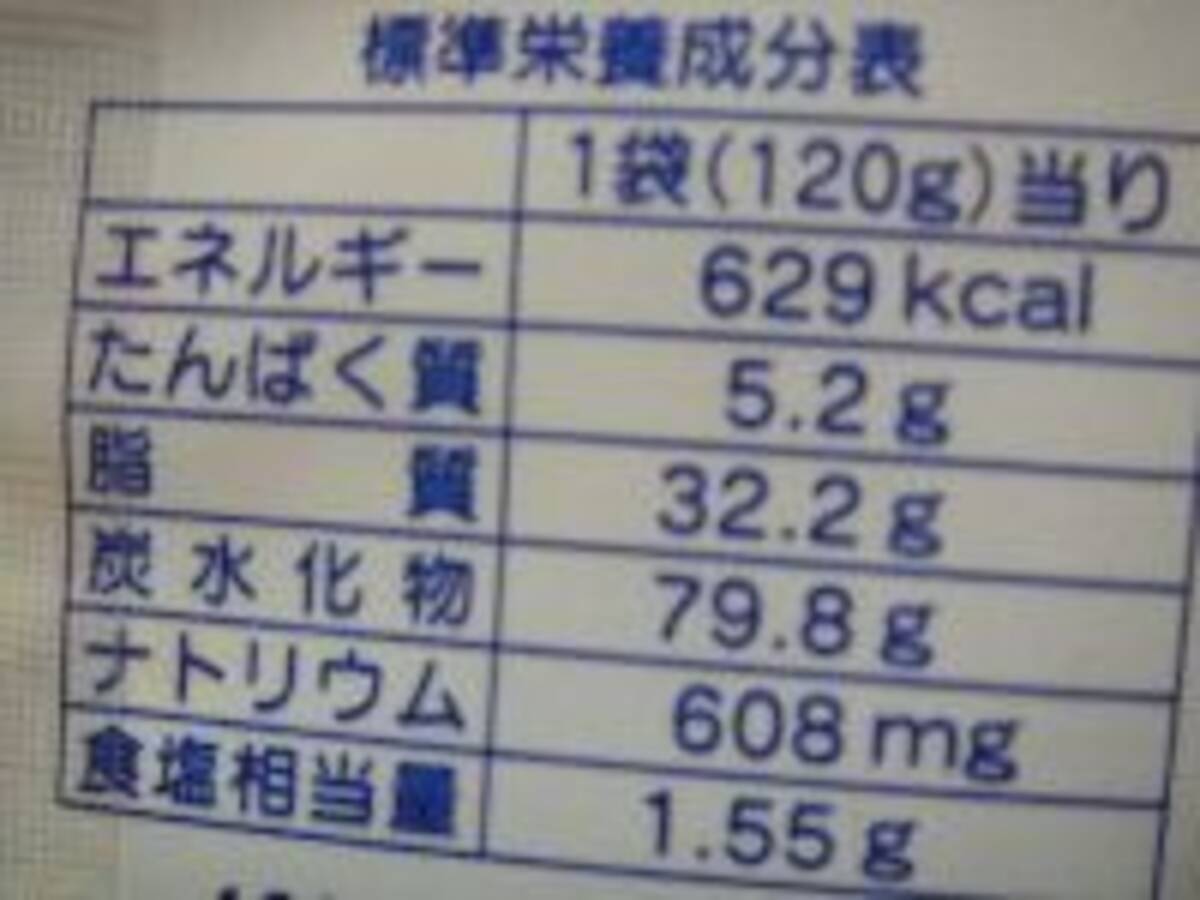 標準栄養成分表
1袋(120g)当り
エネルギー 629 kcal
たんぱく質 5.2 g
脂質 32.2 g
炭水化物 79.8 g
ナトリウム 608 mg
食塩相当量 1.55 g